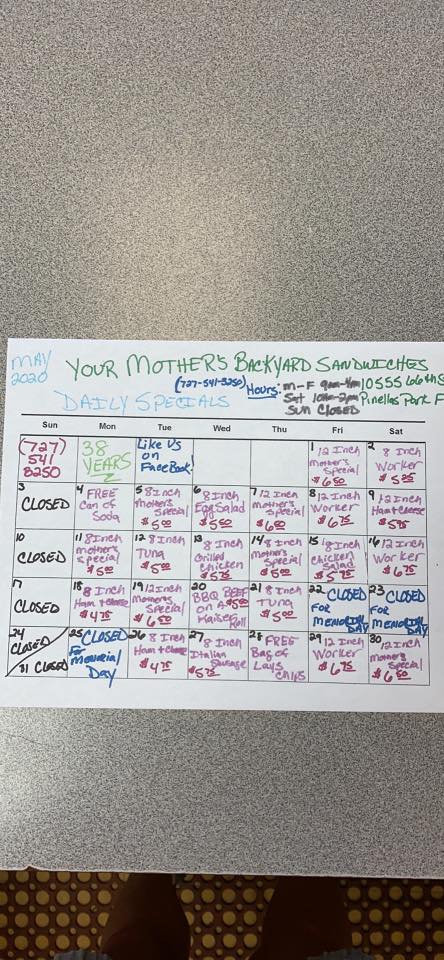 MAY
2020
YOUR MOTHER'S BACKYARD SANDWICHES
(727-541-3250) Hours: M-F 9am-4pm 10555 66th S
DAILY SPECIALS Sat 10am-2pm Pinellas Park F
Sun CLOSED
Sun Mon Tue Wed Thu Fri Sat
(727)
541
3250
38
YEARS
Like Us
on
FaceBook!
1 12 Inch
mother's
Special
$6.50
2 8 Inch
Worker
$5.25
3
CLOSED
4 FREE
Can of
Soda
5 8 Inch
mother's
Special
$5.00
6 8 Inch
Egg Salad
$5.00
7 12 Inch
mother's
Special
$6.00
8 12 Inch
Worker
$6.75
9 12 Inch
Ham + Cheese
10
CLOSED
11 8 Inch
mother's
Special
$5.00
12 8 Inch
Tuna
$5.00
13 8 Inch
Grilled
Chicken
$5.75
14 8 Inch
mother's
Special
$5.00
15 8 Inch
Chicken
Salad
16 12 Inch
Worker
$6.75
17
CLOSED
18 8 Inch
Ham + Cheese
$4.75
19 12 Inch
Mother's
Special
$6.50
20
BBQ BEEF
on A $5.00
Kaiser
Roll
21 8 Inch
Tuna
$5.00
22 CLOSED
FOR
MEMORIAL
DAY
23 CLOSED
FOR
MEMORIAL
DAY
24
CLOSED
31 CLOSED
25 CLOSED
For
Memorial
Day
26 8 Inch
Ham + Cheese
$4.75
27 8 Inch
Italian
Sausage
$5.75
28 FREE
Bag of
Lays
Chips
29 12 Inch
Worker
$6.75
30 12 Inch
mother's
Special
$6.50